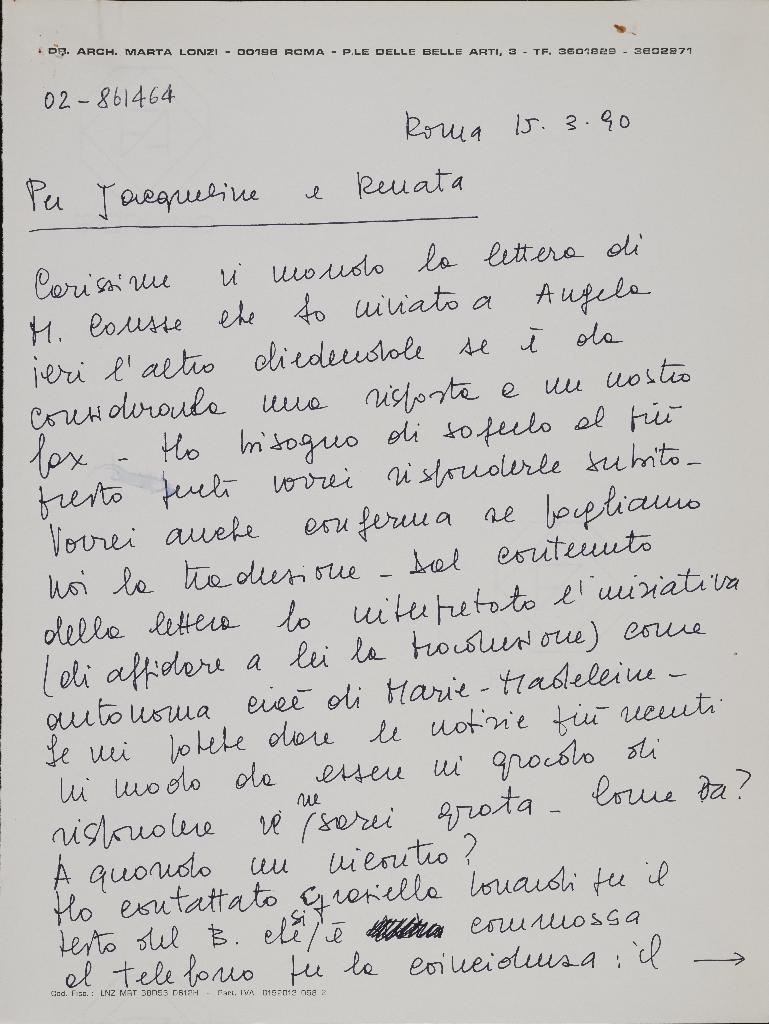 DR. ARCH. MARTA LONZI - 00196 ROMA - P.LE DELLE BELLE ARTI, 3 - TF. 3601829 - 3602971
02-861464
Roma 15.3.90
Per Jacqueline e Renata
Carissime vi mando la lettera di
M. Cousse che ho inviato a Angela
ieri l'altro chiedendole se è da
considerarla una risposta a un nostro
fax - Ho bisogno di saperlo al più
presto perché vorrei risponderle subito -
Vorrei anche conferma se paghiamo
noi la traduzione - Dal contenuto
della lettera ho interpretato l'iniziativa
(di affidare a lei la traduzione) come
autonoma cioè di Marie-Madeleine -
Se mi potete dare le notizie più recenti
in modo da essere in grado di
rispondere ve ne sarei grata - Come va?
A quando un incontro?
Ho contattato Graziella Lonardi per il
testo del B. che si è commossa
al telefono per la coincidenza: il →
Cod. Fisc.: LNZ MRT 38D53 D612H - Part. IVA 0152013 058 2